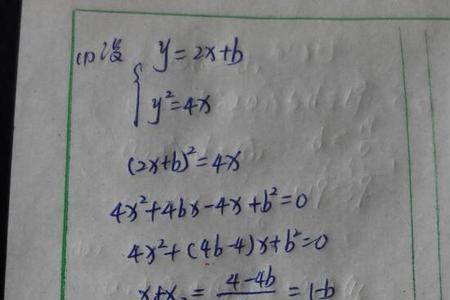 (1)设 y=2x+b
y²=4x
(2x+b)²=4x
4x²+4bx-4x+b²=0
4x²+(4b-4)x+b²=0
x₁+x₂=\frac{4-4b}{}=1-b